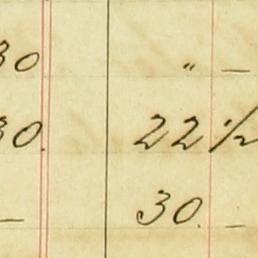 30 " —
30. 22 1/2
— 30. —